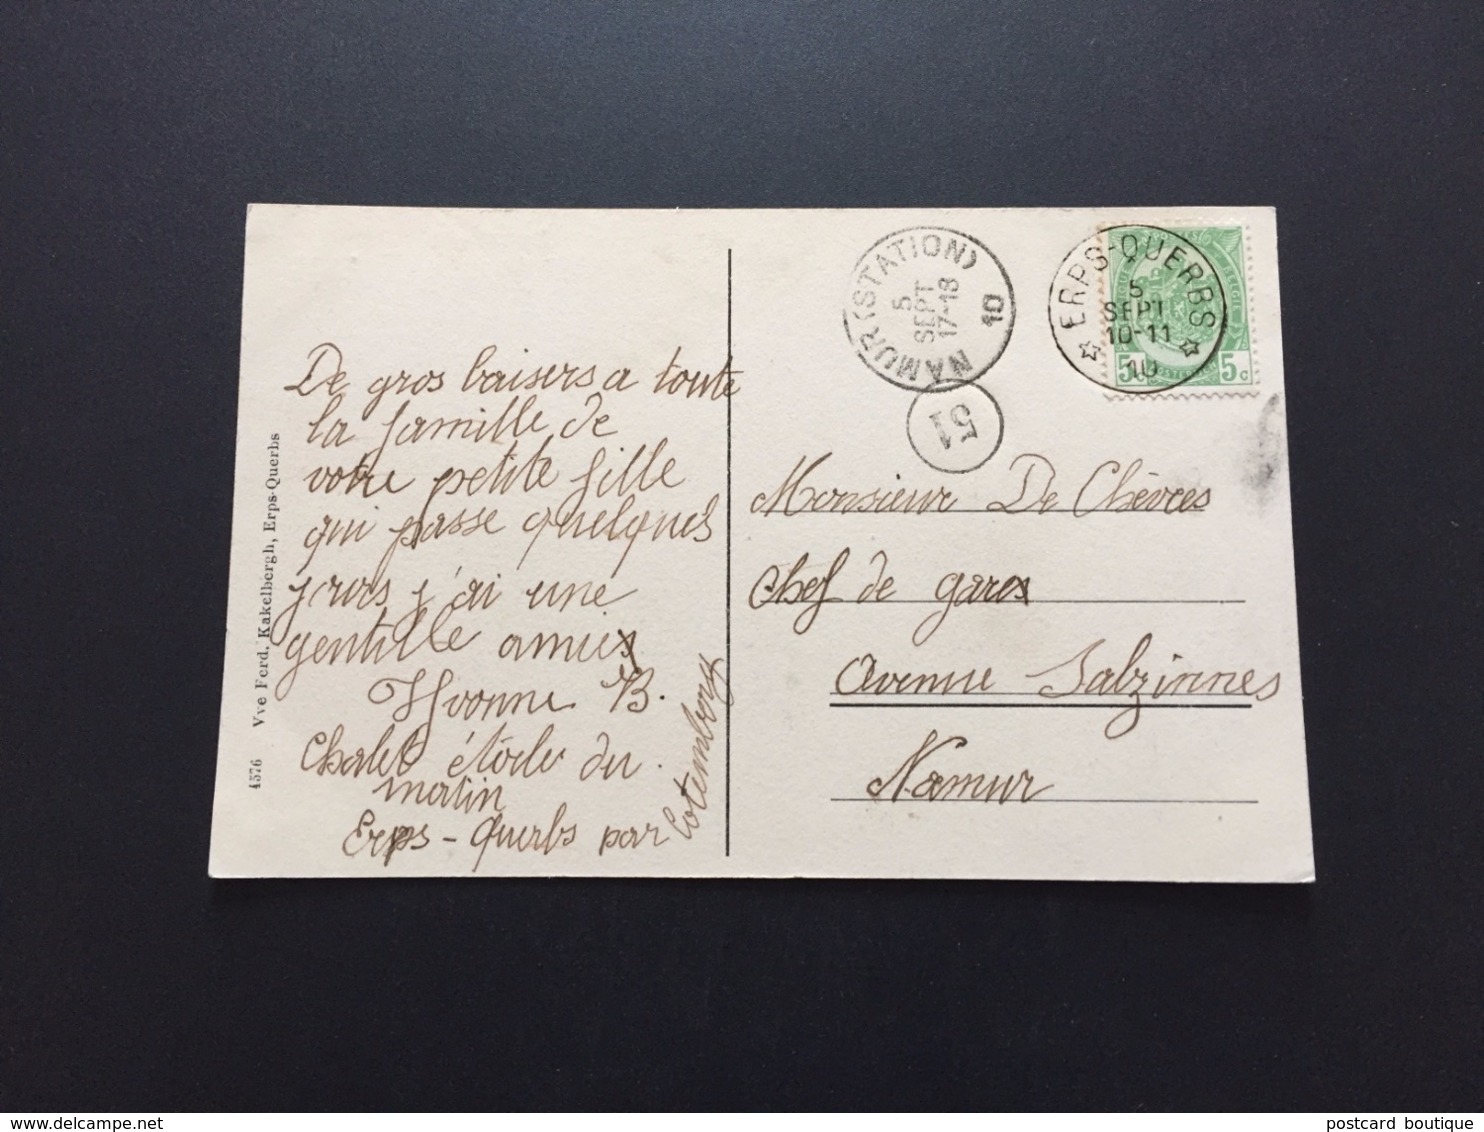 De gros baisers a toute
la famille de
votre petite fille
qui passe quelques
jours j'ai une
gentille amie
Yvonne B.
Chalet étoile du
matin
Erps-Querbs par Cotemberg
4576 Vve Ferd. Kakelbergh, Erps-Querbs
NAMUR (STATION)
5
SEPT
17-18
10
51
ERPS-QUERBS
5
SEPT
10-11
10
5c 5c
Monsieur De Chèvres
Chef de gare
Avenue Salzinnes
Namur
delcampe.net
postcard boutique